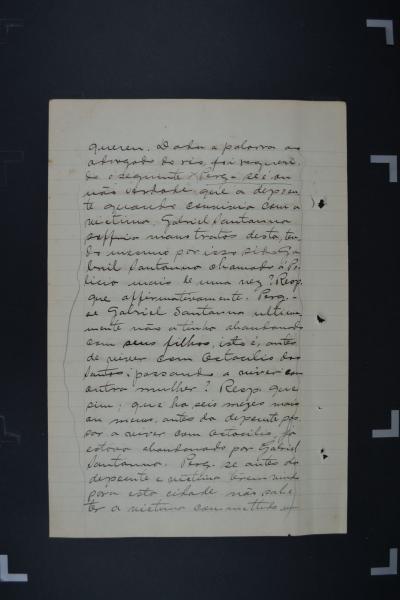 querem. Dada a palavra ao
advogado do réo, foi requeri-
do o seguinte: Perg. se é ou
não verdade que a depoen-
te quando convivia com a
victima, Gabriel Santanna
soffria maus tratos desta, ten-
do mesmo por isso sido Ga-
briel Santanna chamado á Po-
licia mais de uma vez? Resp.
que affirmativamente. Perg.-
se Gabriel Santanna ultima-
mente não a tinha abandonado
com seus filhos, isto é, antes
de viver com Octacilio dos
Santos, passando a viver com
outra mulher? Resp. que
sim; que ha seis mezes mais
ou menos, antes da depoente pas-
sar a viver com Octacilio, já
estava abandonada por Gabriel
Santanna. Perg. se antes da
depoente e victima terem vindo
para esta cidade não sabe
ter a victima commettido